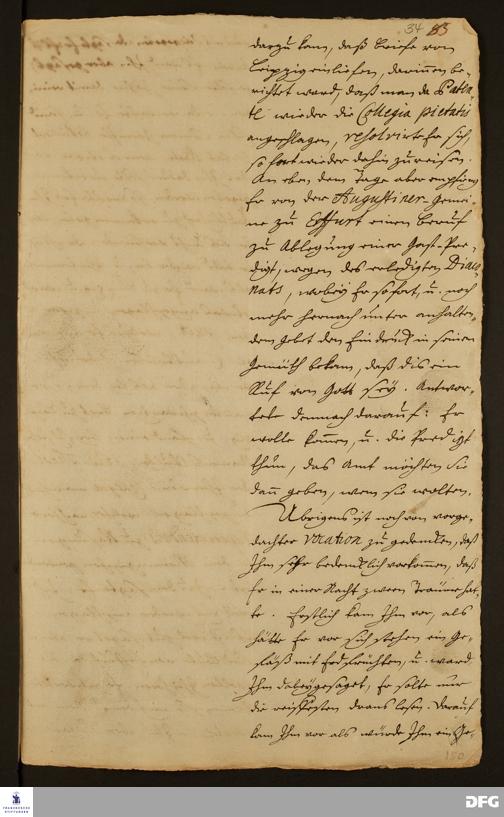 34 83
darzu kam, daß briefe von
Leipzig einliefen, darinnen be-
richtet ward, daß man da Paten-
te wieder die Collegia pietatis
angeschlagen, resolvirte Er sich,
sofort wieder dahin zu reisen.
An eben dem Tage aber empfieng
Er von der Augustiner-Gemei-
ne zu Erffurt einen Beruf
zu Ablegung einer Gast-Pre-
digt, wegen des erledigten Diaco-
nats, wobey Er sofort, u. noch
mehr hernach unter anhalten-
dem Gebet den Eindruck in seinem
Gemüth bekam, daß dis ein
Ruf von Gott sey. Antwor-
tete demnach darauf: Er
wolte kommen, u. die Predigt
thun, das Amt möchten sie
dann geben, wem sie wolten.
Übrigens ist noch von vorge-
dachter Vocation zu gedencken, daß
Ihm sehr bedencklich vorkommen, daß
Er in einer Nacht zween Träume hat-
te. Erstlich kam Ihm vor, als
hätte Er vor sich stehen ein Ge-
fäß mit Erdfrüchten, u. ward
Ihm dabey gesaget, Er solte nur
die reiffesten draus lesen. Darauf
kam Ihm vor als würde Ihm ein Ge-
150
FRANCKESCHE
STIFTUNGEN
DFG